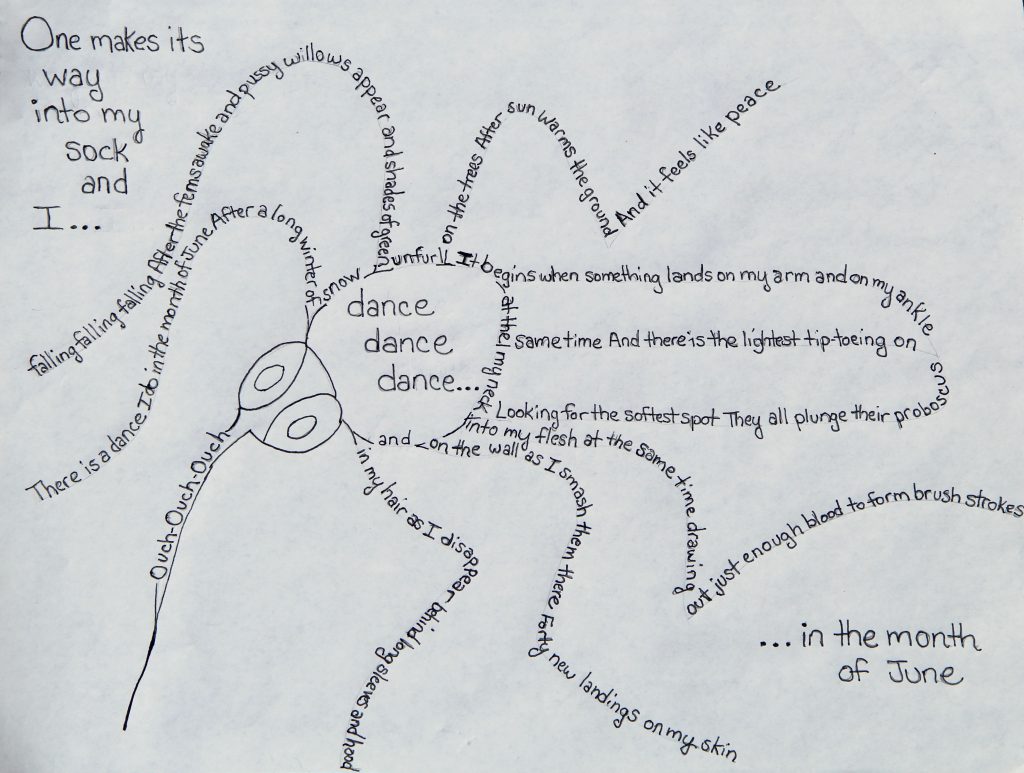 There is a dance I do in the month of June After a long winter of snow
falling falling falling After the ferns awake and pussy willows appear and shades of green unfurl
on the trees After sun warms the ground And it feels like peace
It begins when something lands on my arm and on my ankle
at the same time And there is the lightest tip-toeing on
my neck Looking for the softest spot They all plunge their proboscus
into my flesh at the same time drawing out just enough blood to form brush strokes
on the wall as I smash them there Forty new landings on my skin
and
in my hair as I disappear behind long sleeves and hood
Ouch-Ouch-Ouch
One makes its
way
into my
sock
and
I...
dance
dance
dance...
...in the month
of June